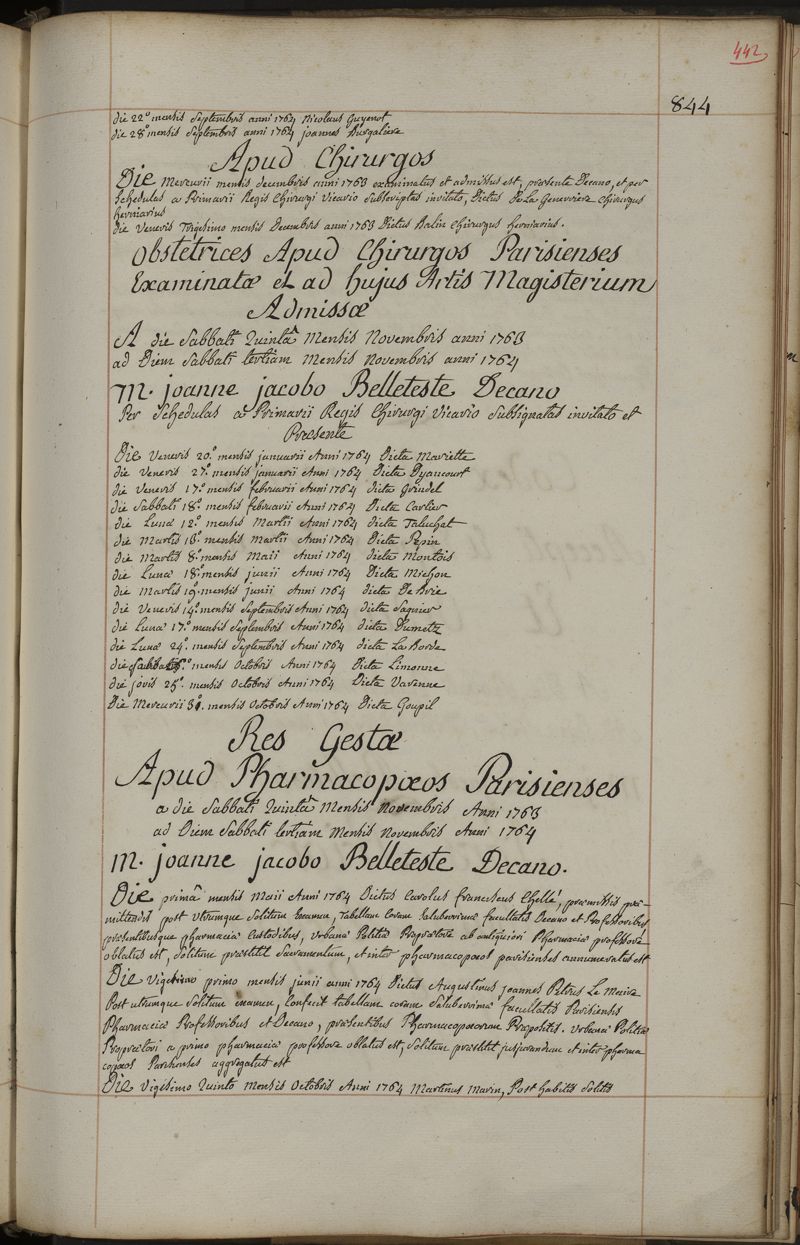 442
844
die 22.° mensis Septembris anni 1764 Nicolaus Guyenot
die 28.° mensis Septembris anni 1764 joannes Burgaliere
Apud Chirurgos
Die Mercurii mensis decembris anni 1763 examinatus et admissus est, præsente Decano, et per
schedulas a Primarii Regis Chirurgi Vicario subscriptas invitato, Dictus De La Genevriere Chirurgus
herniarius
die Veneris Trigesimo mensis Decembris anni 1763 Dictus Balin Chirurgus herniarius.
Obstetrices Apud Chirurgos Parisienses
Examinatæ et ad hujus Artis Magisterium
Admissæ
A die Sabbati Quintâ Mensis Novembris anni 1763
ad Diem Sabbati tertiam Mensis Novembris anni 1764
M. joanne jacobo Belleteste Decano
Per Schedulas a Primarii Regis Chirurgi Vicario Subsignatas invitato et
Præsente
Die Veneris 20.° mensis januarii Anni 1764 Dicta Mariette
die Veneris 27.° mensis januarii Anni 1764 Dicta Dyancourt
die Veneris 17.° mensis februarii Anni 1764 dicta Grindel
die Sabbati 18.° mensis februarii Anni 1764 Dicta Carlier
die Lunæ 12.° mensis Martii Anni 1764 dicta Taluchat
die Martis 13.° mensis Martii Anni 1764 Dicta Pepin
die Martis 8.° mensis Maii Anni 1764 dicta Montois
die Lunæ 18.° mensis junii Anni 1764 Dicta Michon
die Martis 19.° mensis junii Anni 1764 dicta De Brie
die Veneris 14.° mensis Septembris Anni 1764 dicta Sagnier
die Lunæ 17.° mensis Septembris Anni 1764 dicta Dumetz
die Lunæ 24.° mensis Septembris Anni 1764 dicta La Borde
die Sabbati mensis Octobris Anni 1764 Dicta Limonne
die jovis 25.° mensis Octobris Anni 1764 Dicta Varenne
Die Mercurii 31.° mensis Octobris Anni 1764 Dicta Goupil
Res Gestæ
Apud Pharmacopœos Parisienses
a die Sabbati Quintâ Mensis Novembris Anni 1763
ad Diem Sabbati tertiam Mensis Novembris Anni 1764
M. joanne jacobo Belleteste Decano.
Die primâ mensis Maii Anni 1764 Dictus Carolus franciscus Chellé, præmissis præ-
mittendis post Utrumque Solitum Examen, Tabellam Coram Saluberrimæ facultatis Decano et Professoribus
præsentibusque pharmaciæ Custodibus, Urbanæ Politiæ Propraetore ab antiquiori Pharmaciæ professore
oblatus est, Solitum præstitit Sacramentum, et inter pharmacopœos parisienses annumeratus est
Die Vigesimo primo mensis junii anni 1764 Dictus Augustinus joannes Petrus Le Meire
Post utrumque solitum examen, Confecit tabellam coram Saluberrimæ facultatis Parisiensis
Pharmaciæ Professoribus et Decano, præsentibus Pharmacopœorum Præpositis. Urbanæ Politiæ
Propraetori a primo pharmaciæ professore oblatus est, Solitum præstitit jusjurandum et inter pharma
copœos Parisienses aggregatus est
Die Vigesimo Quinto Mensis Octobris Anni 1764 Martinus Marin, Post habitis solitis